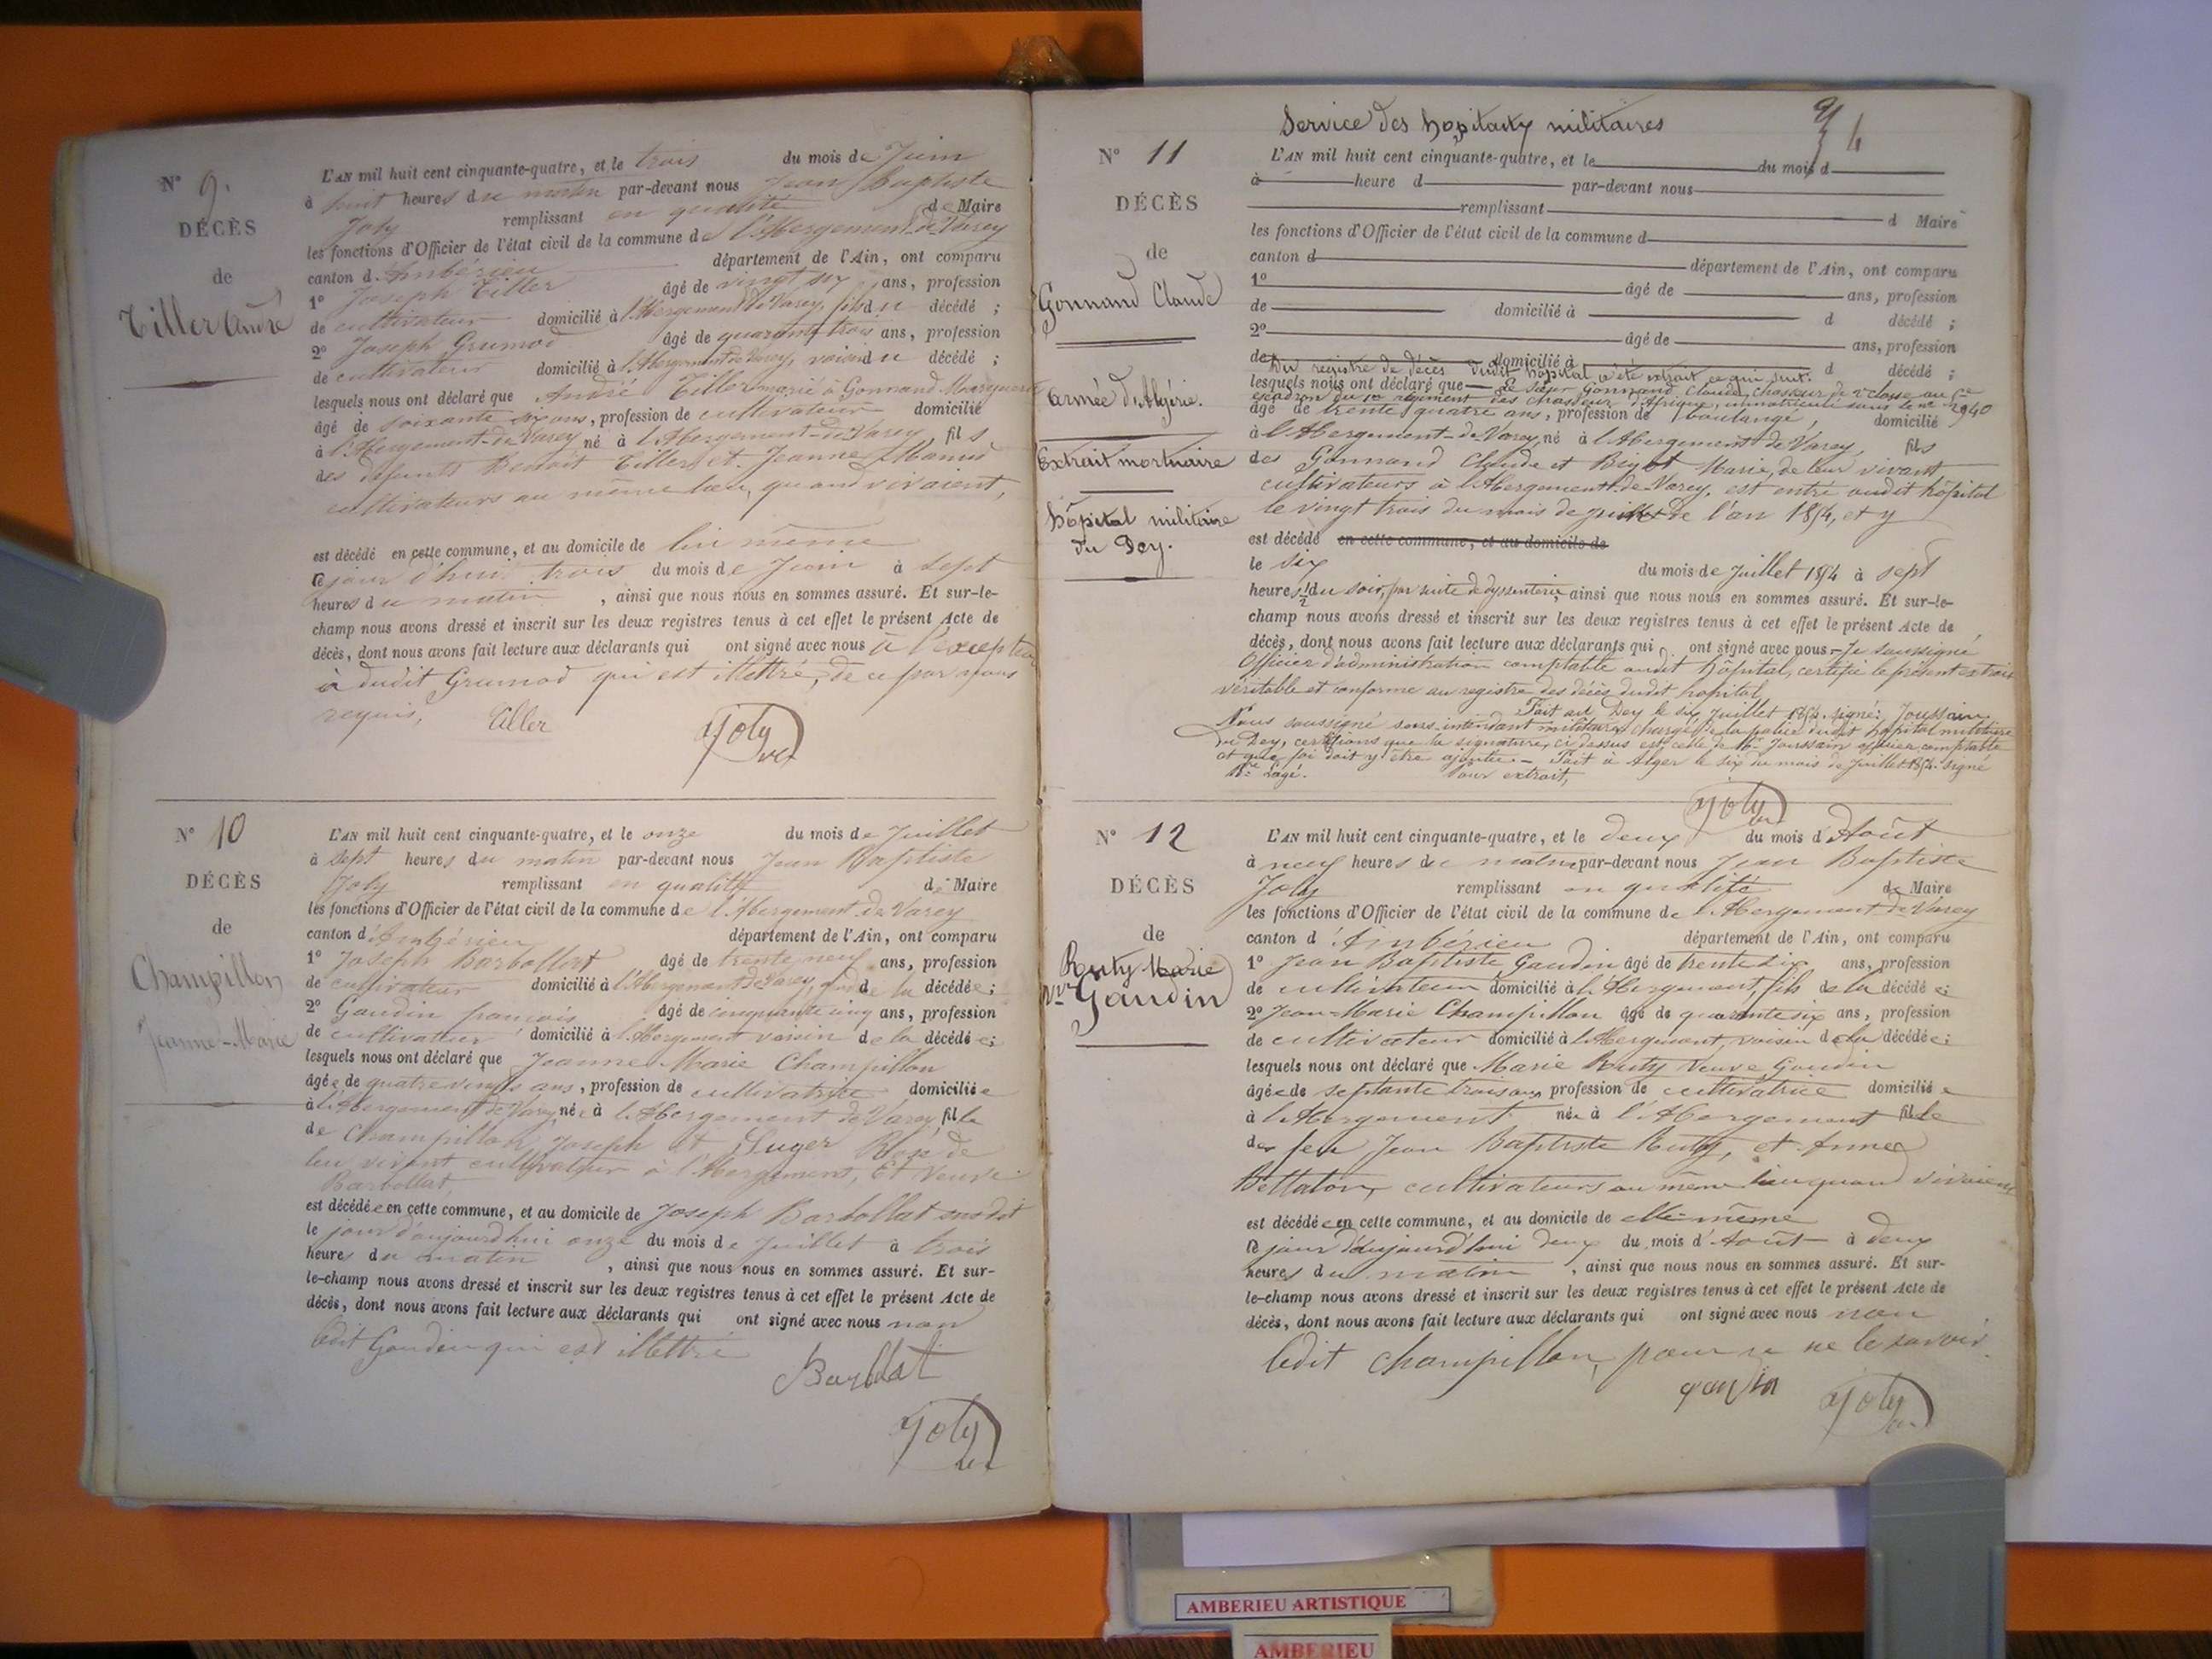 N° 9.
DÉCÈS
de
Tiller André
L'AN mil huit cent cinquante-quatre, et le trois du mois de Juin
à huit heures du matin par-devant nous Jean Baptiste
Joly remplissant en qualité de Maire
les fonctions d'Officier de l'état civil de la commune de l'Abergement-de-Varey
canton d'Ambérieu département de l'Ain, ont comparu
1° Joseph Tiller âgé de vingt six ans, profession
de cultivateur domicilié à l'Abergement de Varey, fils du décédé ;
2° Joseph Grumod âgé de quarante trois ans, profession
de cultivateur domicilié à l'Abergement de Varey, voisin du décédé ;
lesquels nous ont déclaré que André Tiller marié à Gonnand Marguerite
âgé de soixante six ans, profession de cultivateur domicilié
à l'Abergement-de-Varey né à l'Abergement-de-Varey, fils
des défunts Benoit Tiller et Jeanne
cultivateurs au même lieu, quand vivaient,
est décédé en cette commune, et au domicile de lui même
ce jour d'hui trois du mois de Juin à sept
heures du matin, ainsi que nous nous en sommes assuré. Et sur-le-
champ nous avons dressé et inscrit sur les deux registres tenus à cet effet le présent Acte de
décès, dont nous avons fait lecture aux déclarants qui ont signé avec nous à l'exception
dudit Grumod qui est illettré, de ce par nous
requis,
Tiller
Joly
N° 10
DÉCÈS
de
Champillon
Jeanne-Marie
L'AN mil huit cent cinquante-quatre, et le onze du mois de Juillet
à sept heures du matin par-devant nous Jean Baptiste
Joly remplissant en qualité de Maire
les fonctions d'Officier de l'état civil de la commune de l'Abergement de Varey
canton d'Ambérieu département de l'Ain, ont comparu
1° Joseph Barbollat âgé de trente neuf ans, profession
de cultivateur domicilié à l'Abergement de Varey, de la décédée ;
2° Gaudin françois âgé de cinquante cinq ans, profession
de cultivateur domicilié à l'Abergement voisin de la décédée ;
lesquels nous ont déclaré que Jeanne Marie Champillon
âgée de quatre vingts ans, profession de cultivatrice domiciliée
à l'Abergement de Varey née à l'Abergement de Varey, fille
de Champillon Joseph et Suger Rose de
leu vivant cultivateur à l'Abergement, Et veuve
Barbollat,
est décédée en cette commune, et au domicile de Joseph Barbollat susdit
le jour d'aujourd'hui onze du mois de Juillet à trois
heures du matin, ainsi que nous nous en sommes assuré. Et sur-
le-champ nous avons dressé et inscrit sur les deux registres tenus à cet effet le présent Acte de
décès, dont nous avons fait lecture aux déclarants qui ont signé avec nous non
ledit Gaudin qui est illettré
Barbollat
Joly
Service des hôpitaux militaires
N° 11
DÉCÈS
de
Gonnand Claude
Armée d'Algérie.
Extrait mortuaire
hôpital militaire
du Dey.
L'AN mil huit cent cinquante-quatre, et le du mois d
à heure d par-devant nous
remplissant d Maire
les fonctions d'Officier de l'état civil de la commune d
canton d département de l'Ain, ont comparu
1° âgé de ans, profession
de domicilié à d décédé ;
2° âgé de ans, profession
de domicilié à d décédé ;
Du registre de décès dudit hôpital a été extrait ce qui suit.
lesquels nous ont déclaré que Le sieur Gonnand Claude, chasseur de 2e classe au
escadron du 1er régiment des chasseurs d'Afrique, immatriculé sous le n° 2940
âgé de trente quatre ans, profession de boulanger, domicilié
à l'Abergement-de-Varey, né à l'Abergement de Varey, fils
des Gonnand Claude et Bigot Marie, de leur vivant
cultivateurs à l'Abergement-de-Varey, est entré audit hôpital
le vingt trois du mois de de l'an 1854, et y
est décédé en cette commune, et au domicile de
le six du mois de Juillet 1854 à sept
heures 1/2 du soir, par suite de dyssenterie ainsi que nous nous en sommes assuré. Et sur-le-
champ nous avons dressé et inscrit sur les deux registres tenus à cet effet le présent Acte de
décès, dont nous avons fait lecture aux déclarants qui ont signé avec nous – Je soussigné
Officier d'administration comptable audit hôpital, certifie le présent extrait
véritable et conforme au registre des décès dudit hôpital,
Fait au Dey le six Juillet 1854. signé: Joussain
Nous soussigné sous-intendant militaire chargé de la police dudit hôpital militaire
du Dey, certifions que la signature, ci dessus est celle de Mr Joussain officier comptable
et que foi doit y être ajoutée. – Fait à Alger le six du mois de Juillet 1854. signé
Lagé. Pour extrait,
Joly
N° 12
DÉCÈS
de
Ruty Marie
Vve Gaudin
L'AN mil huit cent cinquante-quatre, et le deux du mois d'Août
à neuf heures du matin par-devant nous Jean Baptiste
Joly remplissant en qualité de Maire
les fonctions d'Officier de l'état civil de la commune de l'Abergement de Varey
canton d'Ambérieu département de l'Ain, ont comparu
1° Jean Baptiste Gaudin âgé de trente six ans, profession
de cultivateur domicilié à l'Abergement, fils de la décédée ;
2° Jean-Marie Champillon âgé de quarante six ans, profession
de cultivateur domicilié à l'Abergement, voisin de la décédée ;
lesquels nous ont déclaré que Marie Ruty veuve Gaudin
âgée de septante trois ans profession de cultivatrice domiciliée
à l'Abergement née à l'Abergement fille
de feu Jean Baptiste Ruty, et Anne
Bettaton, cultivateurs au même lieu quand vivaient
est décédée en cette commune, et au domicile de elle-même
ce jour d'aujourd'hui deux du mois d'Août à deux
heures du matin, ainsi que nous nous en sommes assuré. Et sur-
le-champ nous avons dressé et inscrit sur les deux registres tenus à cet effet le présent Acte de
décès, dont nous avons fait lecture aux déclarants qui ont signé avec nous non
ledit Champillon, pour ne le savoir.
gaudin
Joly
AMBERIEU ARTISTIQUE
AMBERIEU